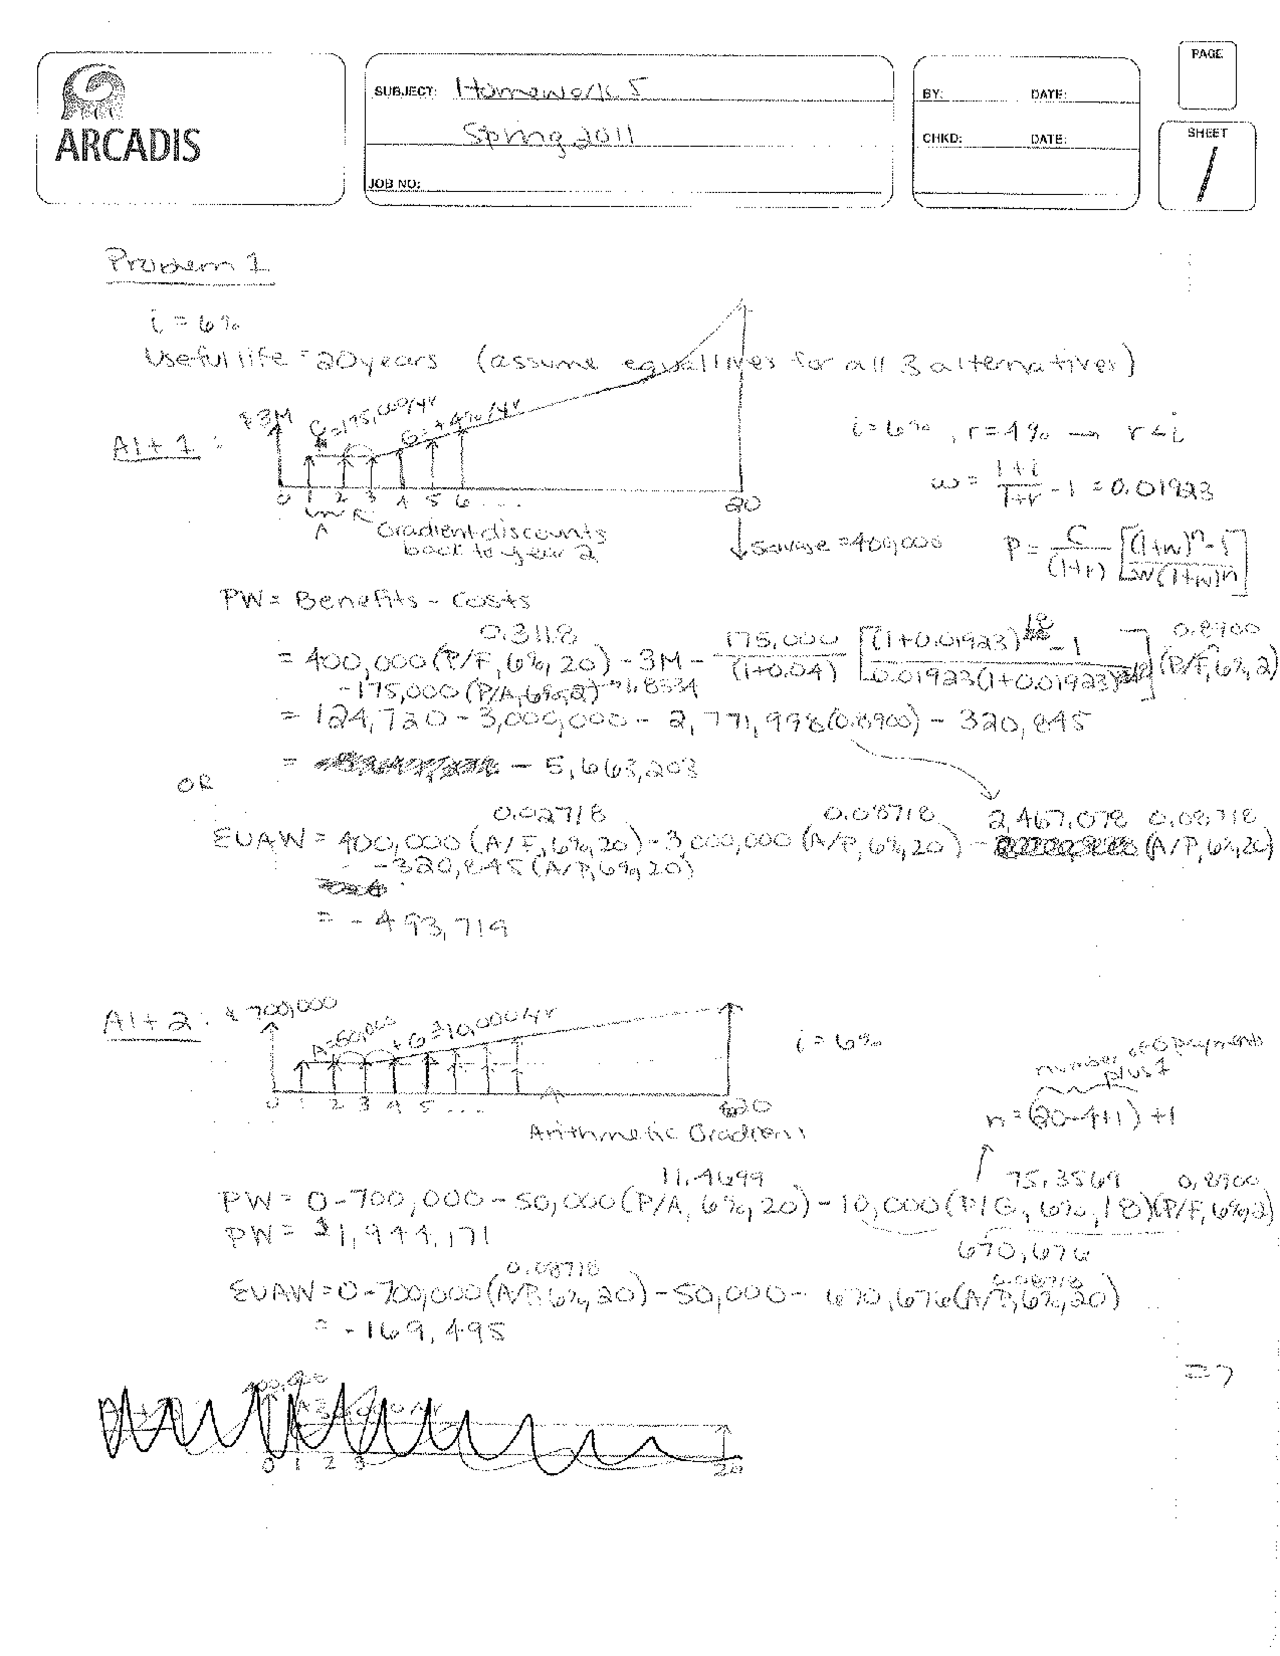 ARCADIS
SUBJECT: Homework 5
Spring 2011
JOB NO:
BY: DATE:
CHKD: DATE:
PAGE
SHEET
1
Problem 1
i = 6%
Useful life = 20 years (assume equal lives for all 3 alternatives)
Alt 1:
$3M
C=175,000/yr
G=+4%/yr
0 1 2 3 4 5 6 ... 20
A
Gradient discounts
back to year 2
Salvage = 400,000
i=6%, r=4% → r<i
w = (1+i)/(1+r) - 1 = 0.01923
P = C/(1+r) [(1+w)^n - 1 / w(1+w)^n]
PW = Benefits - Costs
0.3118 0.8900
= 400,000 (P/F, 6%, 20) - 3M - 175,000/(1+0.04) [(1+0.01923)^18 - 1 / 0.01923(1+0.01923)^18] (P/F, 6%, 2)
-175,000 (P/A, 6%, 2) 1.8334
= 124,720 - 3,000,000 - 2,771,998(0.8900) - 320,845
= - 5,663,203
OR
0.02718 0.08718 2,467,078 0.08718
EUAW = 400,000 (A/F, 6%, 20) - 3,000,000 (A/P, 6%, 20) - (A/P, 6%, 20)
-320,845 (A/P, 6%, 20)
= - 493,719
Alt 2: $700,000
A=50,000
+G=10,000/yr
0 1 2 3 4 5 ... 20
i = 6%
Arithmetic Gradient
number of G payments
plus 1
n = (20-4+1) +1
11.4699 75.3569 0.8900
PW = 0 - 700,000 - 50,000 (P/A, 6%, 20) - 10,000 (P/G, 6%, 18)(P/F, 6%, 2)
PW = $1,944,171
670,676
0.08718 0.08718
EUAW = 0 - 700,000 (A/P, 6%, 20) - 50,000 - 670,676 (A/P, 6%, 20)
= - 169,495
0 1 2 3 20